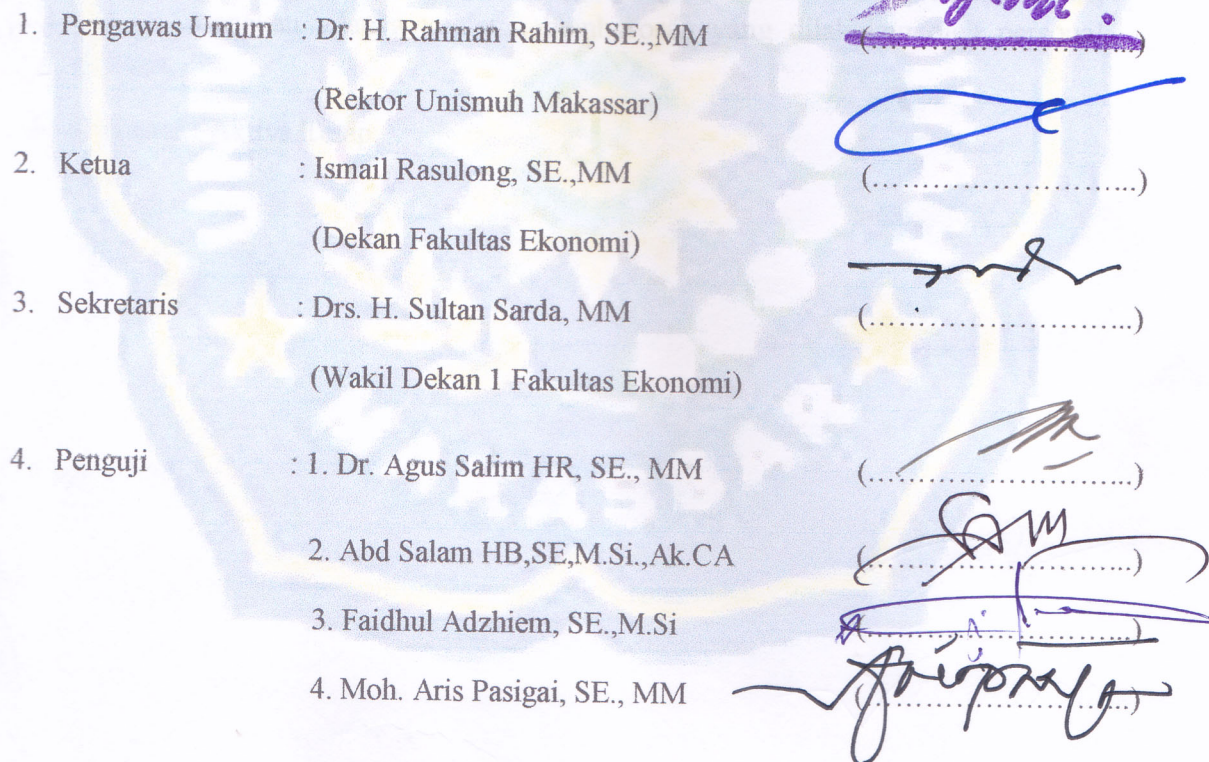 1. Pengawas Umum : Dr. H. Rahman Rahim, SE.,MM (..........................)
(Rektor Unismuh Makassar)
2. Ketua : Ismail Rasulong, SE.,MM (..........................)
(Dekan Fakultas Ekonomi)
3. Sekretaris : Drs. H. Sultan Sarda, MM (..........................)
(Wakil Dekan 1 Fakultas Ekonomi)
4. Penguji : 1. Dr. Agus Salim HR, SE., MM (..........................)
2. Abd Salam HB,SE,M.Si.,Ak.CA (..........................)
3. Faidhul Adzhiem, SE.,M.Si (..........................)
4. Moh. Aris Pasigai, SE., MM (..........................)
MAKASSAR